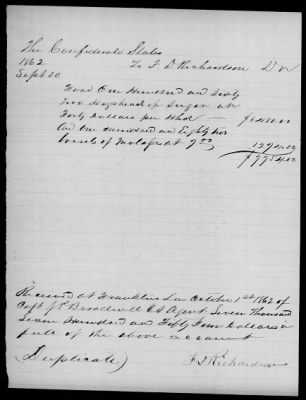 The Confederate States
1862 To F. D. Richardson Dr
Sept 30
One Hundred and Sixty
Two Hogshead of Sugar at
Forty dollars per Hhd — $6480.00
And One Hundred and Eighty two
barrels of Molasses at 7.00 1274.00
$7754.00
Received at Franklin La October 1st 1862 of
Capt Broadwell CS Agent Seven Thousand
Seven Hundred and Fifty Four Dollars in
full of the above account
(Duplicate) F D Richardson